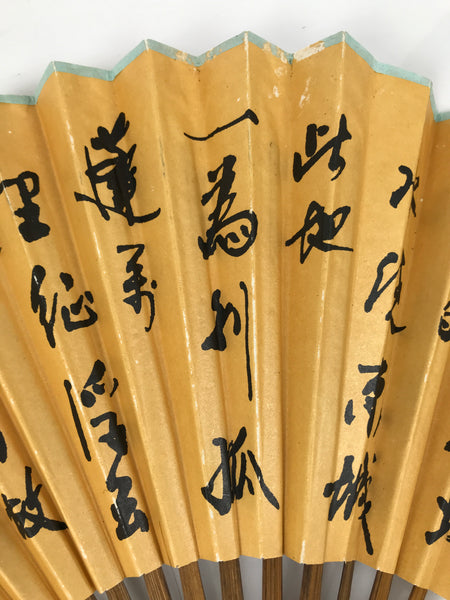 水繞東城
此地
一為別孤
蓬萬
里征浮雲
故